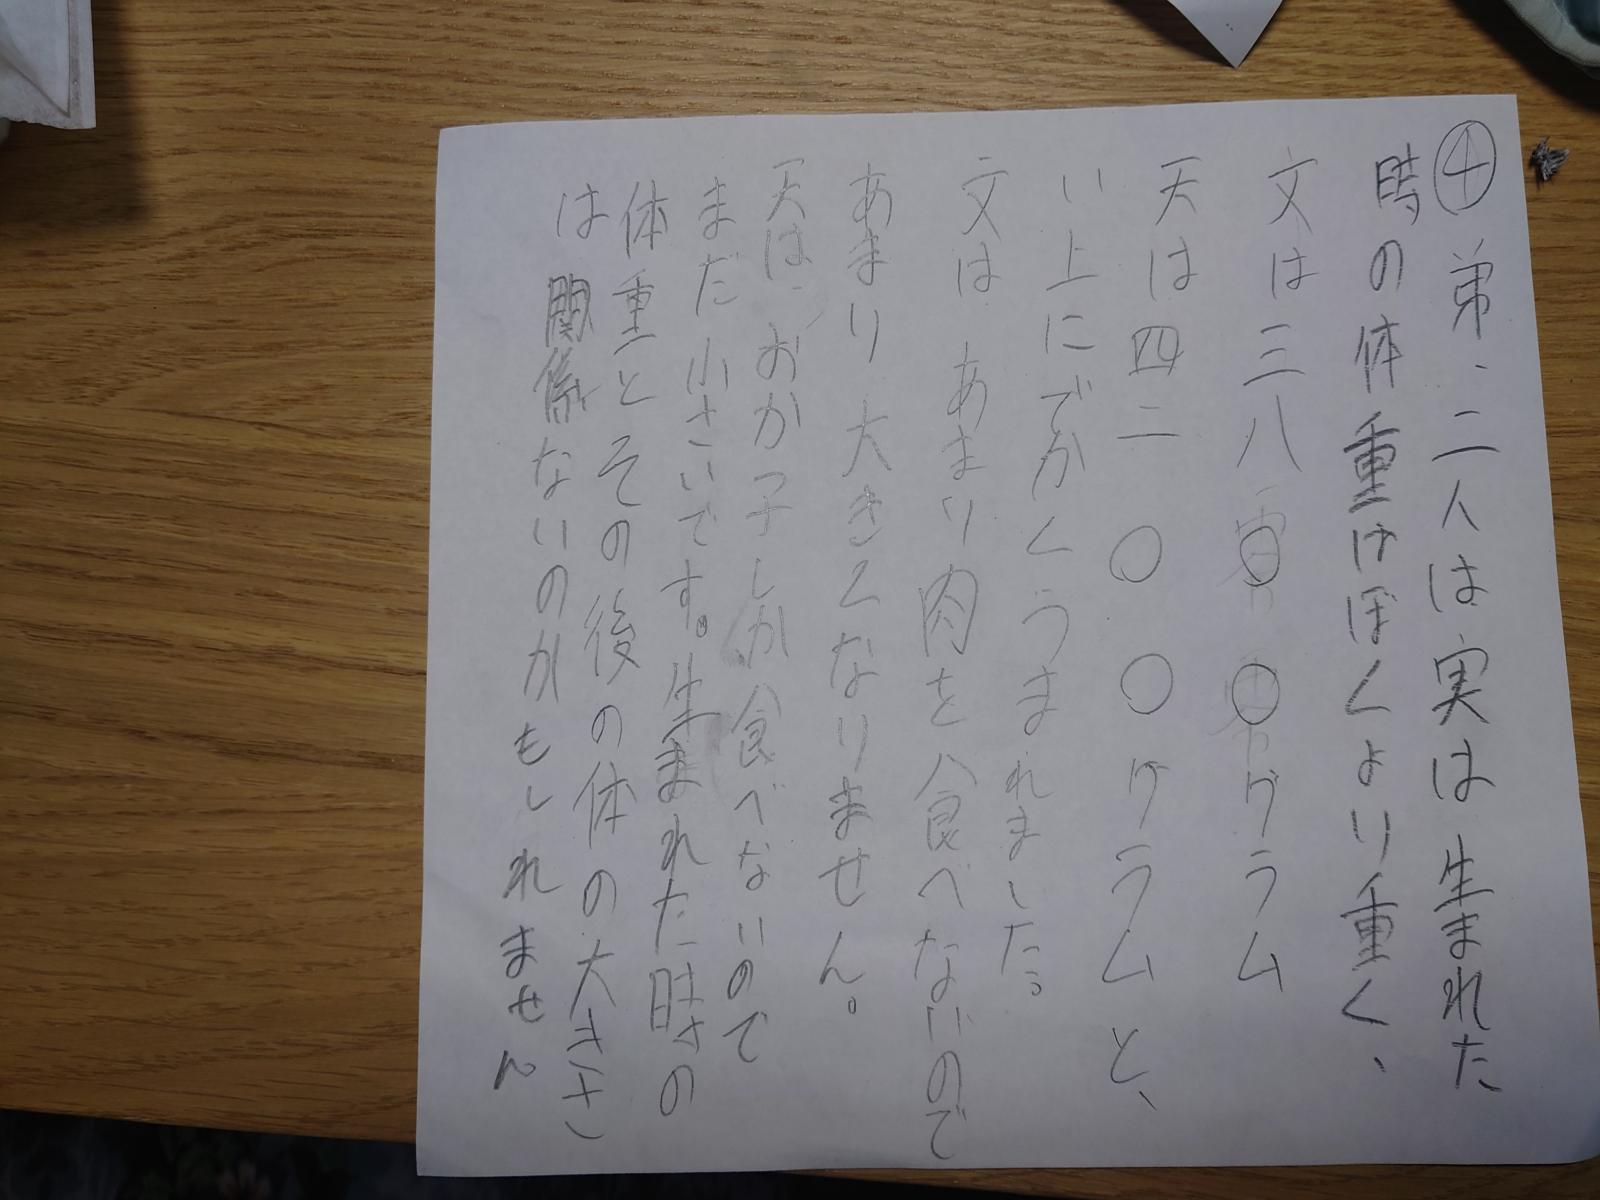 ④弟、二人は実は生まれた
時の体重はぼくより重く、
文は三八〇〇グラム
天は四二〇〇グラムと、
い上にでかくうまれました。
文は、あまり肉を食べないので
あまり大きくなりません。
天は、おかっ子しか食べないので
まだ小さいです。生まれた時の
体重とその後の体の大きさ
は関係ないのかもしれません